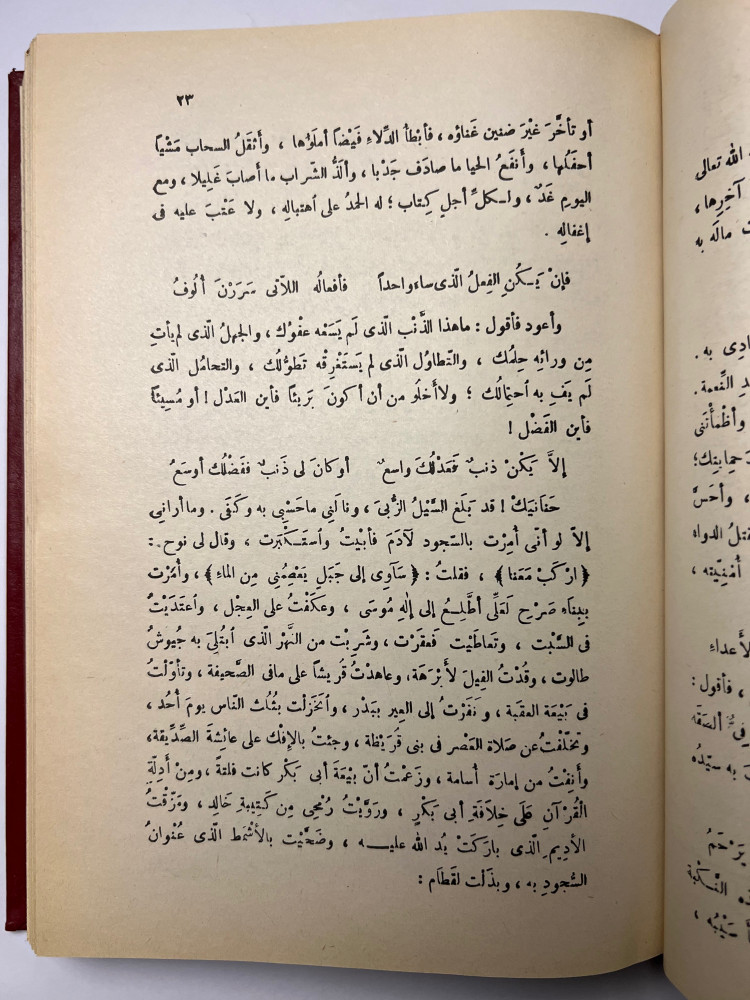 ٢٣
أو تأخَّرَ غيْرَ ضنين غَناؤه ، فأبْطأُ الدِّلاءِ فَيْضاً أملَؤُها ، وأثقَلُ السحابِ مَشْياً
أحفَلُها ، وأنفَعُ الحيا ما صادَف جَدْبا ، وألَذُّ الشّراب ما أصابَ غَلِيلا ، ومع
اليومِ غَدٌ ، ولسكلِّ أجلٍ كِتاب ؛ له الحمدُ على اهتبالِهِ ، ولا عَتْبَ عليه فى
إغفالِهِ .
فإنْ يَكُنِ الفِعلُ الّذى ساء واحداً فأفعالُه اللاّتى سَرَرْنَ أُلُوفُ
وأعود فأقول : ماهذا الذَّنْب الذى لَم يَسَعْه عفوُك ، والجهلُ الذى لم يأتِ
مِن ورائِه حِلمُك ، والتّطاوُل الّذى لم يَستَغْرِقْه تَطوُّلُك ، والتحامُل الّذى
لَم يَفِ به احتِمالُك ؛ ولا أخلُو من أن أكونَ بَريئاً فأين العَدْل ! أو مُسِيئاً
فأين الفَضْل !
إلاَّ يَكُنْ ذنبٌ فعَدْلُكَ واسعٌ أو كانَ لى ذَنبٌ ففَضْلُك أوسَعُ
حَنَانَيكْ ! قد بَلغَ السَّيْلُ الزُّبىَ ، ونالَنِي ماحَسْبِى به وكَفَى . وما أرانِي
إلاّ لو أنّى أُمِرْت بالسّجود لآدَمَ فأبَيْتُ واستَكبَرت ، وقال لى نوح :
﴿ ارْكَبْ مَعَنا ﴾ ، فقلتُ : ﴿ سَآوِى إلى جَبَلٍ يَعْصِمُنِي مِن الماءِ ﴾ ، وأُمِرْت
بِبِناءِ صَرْحٍ لَعَلِّى أطَّلِعُ إلى إلهِ مُوسَى ، وعكَفْتُ على العِجْل ، واعتَدَيْتُ
فى السَّبْت ، وتَعاطَيْت فعقَرْت ، وشَرِبْت من النَّهْر الّذى ابتُلِىَ به جُيوشُ
طالوت ، وقُدْتُ الفِيلَ لأَبْرَهَة ، وعاهدْتُ قُريشاً على مافى الصّحيفة ، وتأوّلْتُ
فى بَيْعَة العقَبة ، ونَفَرْتُ إلى العِيرِ ببَدْر ، وانخَزَلْت بثُلُث النّاس يومَ أُحُد ،
وتخلّفْتُ عن صَلاة العَصْر فى بنى قُرَيْظة ، وجئتُ بالإفْك على عائِشةَ الصِّدِّيقة ،
وأنِفْتُ من إمارَة أُسامة ، وزَعَمْتُ أنّ بَيْعَة أبى بَكْر كانت فلتَةً ، ومِنْ أدِلَّةِ
القُرْآنِ عَلَى خِلاَفَةِ أبى بَكْرٍ ، ورَوَّيْتُ رُمْحِي مِن كَتِيبةِ خَالدٍ ، ومَزّقْتُ
الأديمِ الّذى بارَكَتْ يدُ الله عليـه ، وضَحَّيْت بالأشْمَط الّذى عُنْوانُ
السّجودِ به ، وبذَلْت لقَطام :